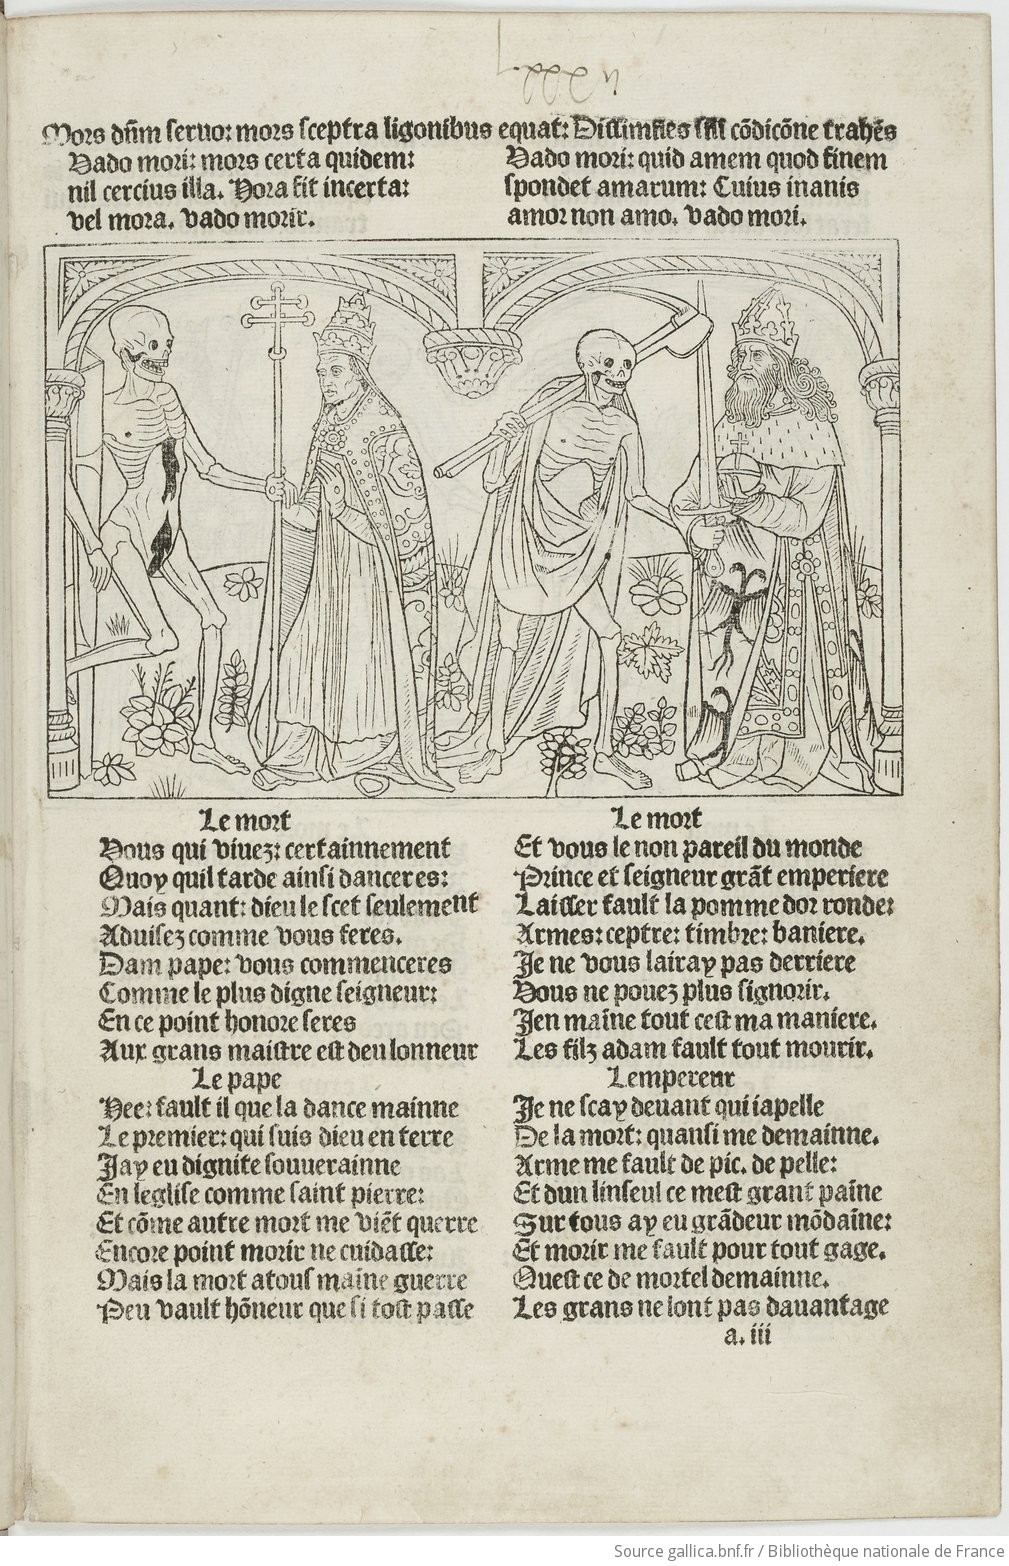 Mors dn̄m seruo: mors sceptra ligonibus equat: Dissimiles simili cōdicōne trahēs
Vado mori: mors certa quidem:
nil cercius illa. Hora fit incerta:
vel mora. vado morir.
Vado mori: quid amem quod finem
spondet amarum: Cuius inanis
amor non amo. vado mori.
Le mort
Vous qui viuez: certainnement
Quoy quil tarde ainsi danceres:
Mais quant: dieu le scet seulement
Aduisez comme vous feres.
Dam pape: vous commenceres
Comme le plus digne seigneur:
En ce point honore seres
Aux grans maistre est deu lonneur
Le pape
Hee: fault il que la dance mainne
Le premier: qui suis dieu en terre
Jay eu dignite souuerainne
En leglise comme saint pierre:
Et cōme autre mort me viēt querre
Encore point morir ne cuidasse:
Mais la mort a tous maīne guerre
Peu vault hōneur que si tost passe
Le mort
Et vous le non pareil du monde
Prince et seigneur grāt emperiere
Laisser fault la pomme dor ronde:
Armes: ceptre: timbre: baniere.
Je ne vous lairay pas derriere
Vous ne pouez plus signorir.
Jen maīne tout cest ma maniere.
Les filz adam fault tout mourir.
Lempereur
Je ne scay deuant qui iapelle
De la mort: quansi me demainne.
Arme me fault de pic. de pelle:
Et dun linseul ce mest grant paīne
Sur tous ay eu grādeur mōdaīne:
Et morir me fault pour tout gage.
Quest ce de mortel demainne.
Les grans ne lont pas dauantage
a. iii
Source gallica.bnf.fr / Bibliothèque nationale de France